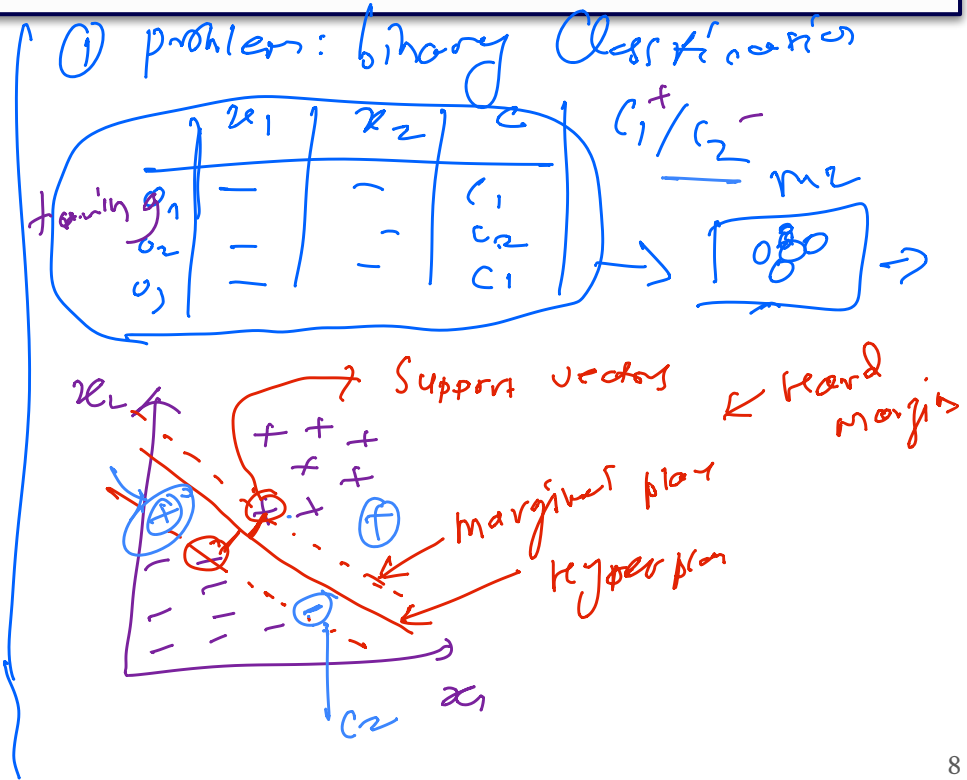 ① problem: binary Classification
x1 x2 C
C1+/C2-
training
o1 — — C1
o2 — - C2
o3 — — C1
m2
x2
Support vectors
Hard margin
marginal plan
Hyperplan
x1
C2
8